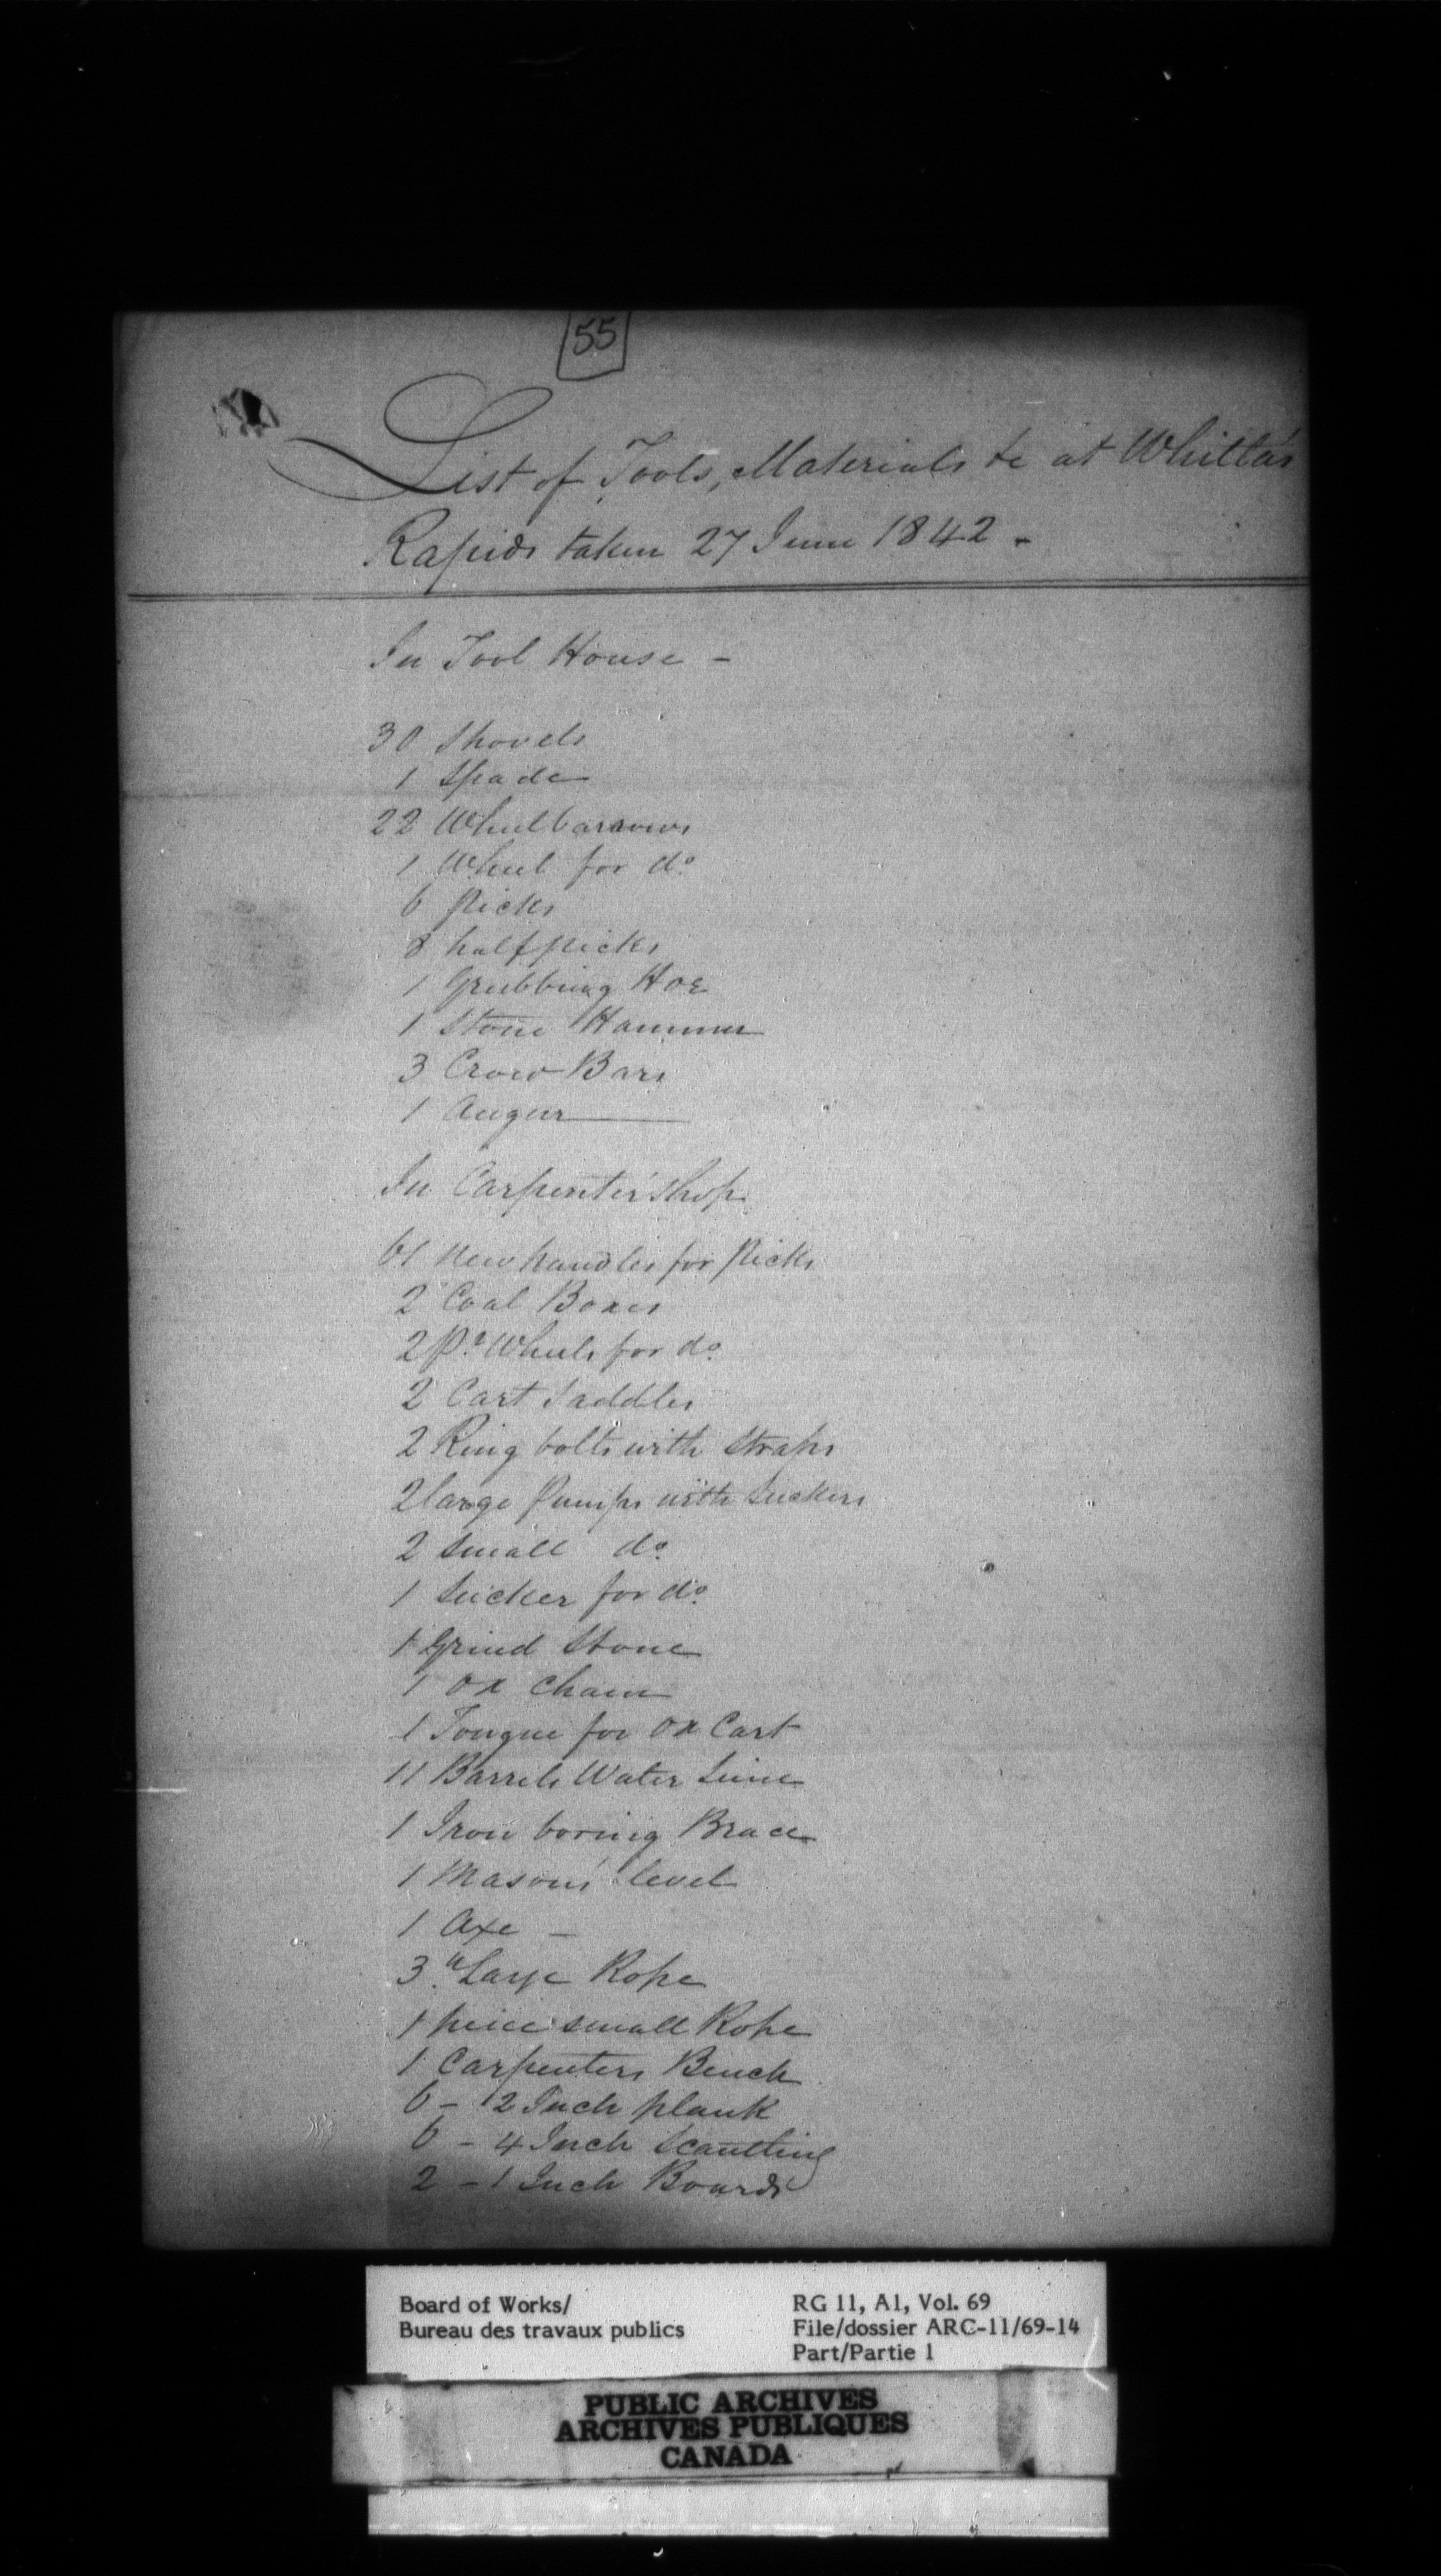 55
List of Tools, Materials &c at Whitla's
Rapids taken 27 June 1842 -
In Tool House -
30 Shovels
1 Spade
22 Wheelbarrows
1 Wheel for do
6 Picks
8 half picks
1 Grubbing Hoe
1 Stone Hammer
3 Crow Bars
1 Augur
In Carpenter's Shop
61 New handles for Picks
2 Coal Boxes
2 Pr Wheels for do
2 Cart Saddles
2 Ring bolts with Straps
2 large Pumps with Suckers
2 Small do
1 Sucker for do
1 Grind Stone
1 Ox Chain
1 Tongue for Ox Cart
11 Barrels Water Lime
1 Iron boring Brace
1 Mason's level
1 Axe -
3 " Large Rope
1 peice small Rope
1 Carpenters Bench
6 - 2 Inch plank
6 - 4 Inch Scantling
2 - 1 Inch Boards
Board of Works/
Bureau des travaux publics
RG 11, A1, Vol. 69
File/dossier ARC-11/69-14
Part/Partie 1
PUBLIC ARCHIVES
ARCHIVES PUBLIQUES
CANADA